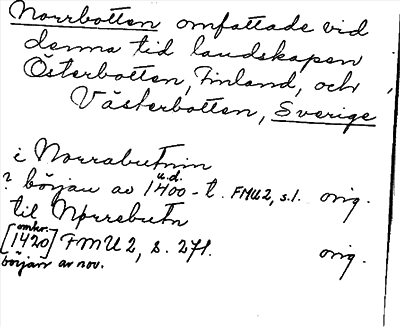 Norrbotten omfattade vid
denna tid landskapen
Österbotten, Finland, och
Västerbotten, Sverige
i Norrabutnin
u.d.
? början av 1400-t. FMU2, s.1. orig.
til Nørrebutn
omkr.
[1420] FMU2, s. 271. orig.
början av nov.